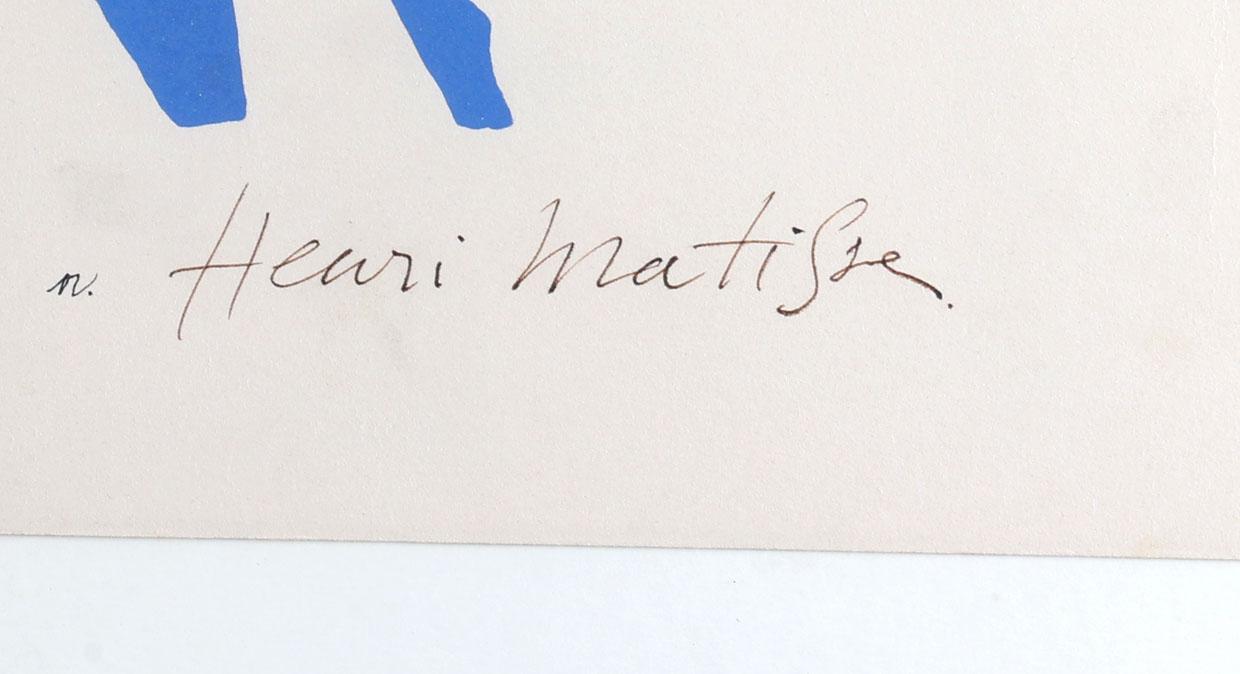 n. Henri Matisse.